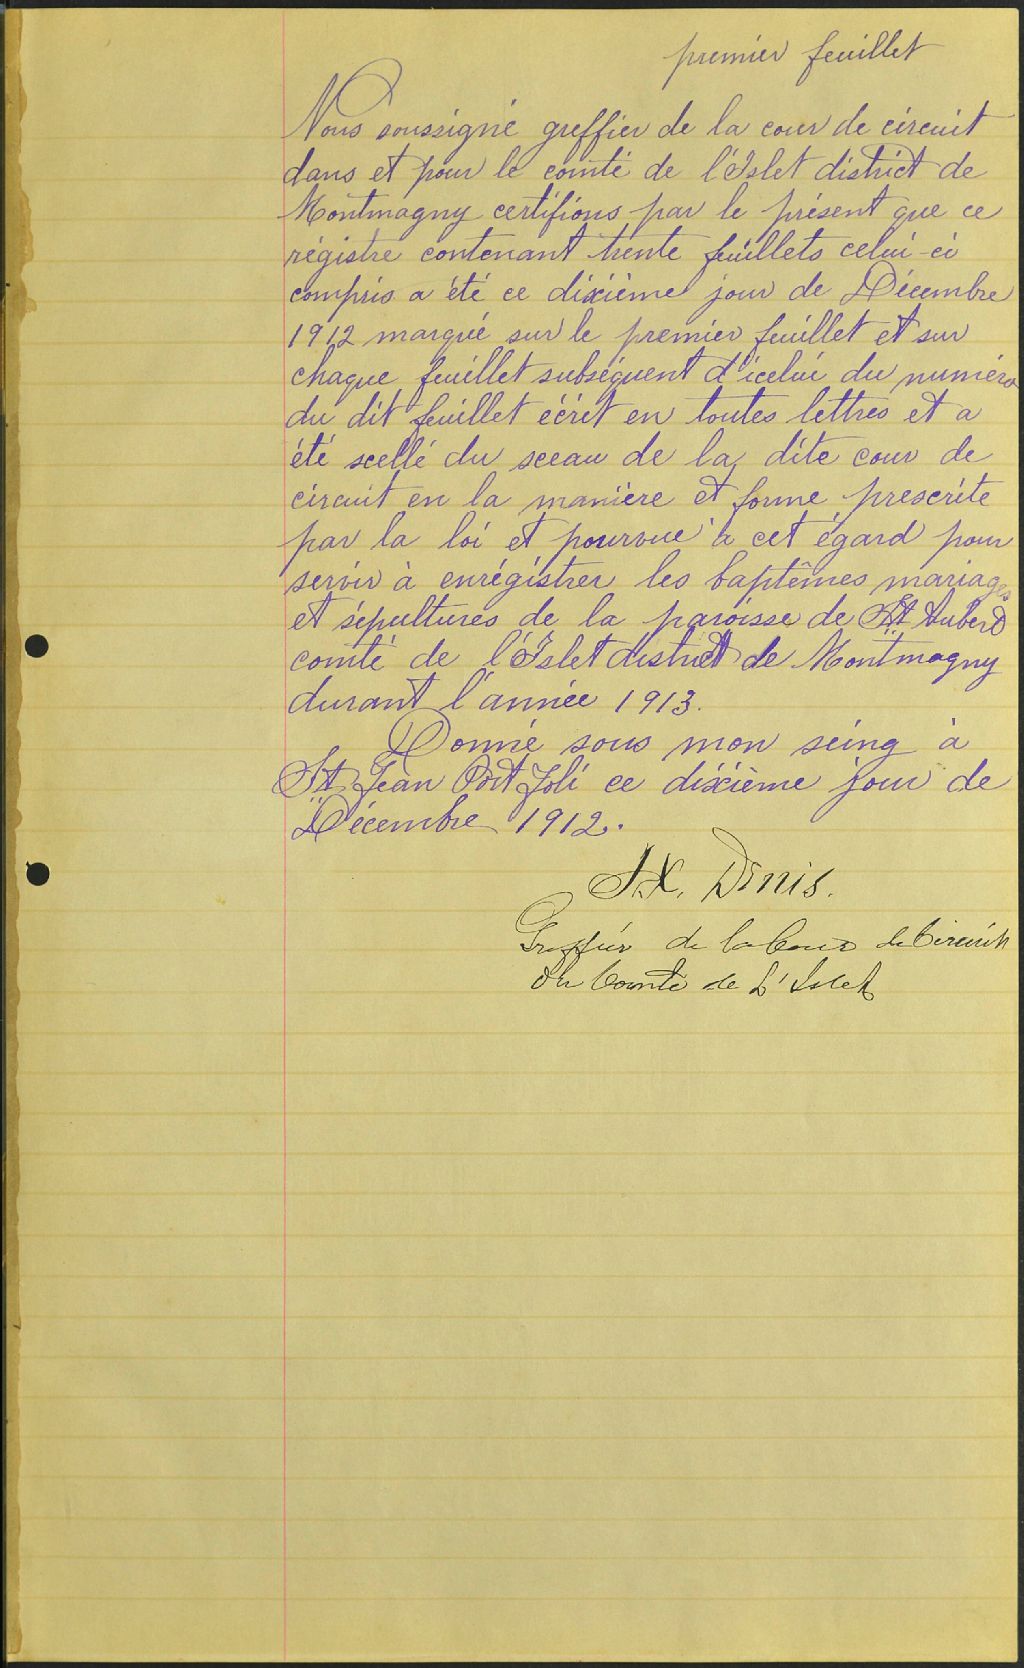 premier feuillet
Nous soussigné greffier de la cour de circuit
dans et pour le comté de l'Islet district de
Montmagny certifions par le présent que ce
régistre contenant trente feuillets celui-ci
compris a été ce dixième jour de Décembre
1912 marqué sur le premier feuillet et sur
chaque feuillet subséquent d'icelui du numéro
du dit feuillet écrit en toutes lettres et a
été scellé du sceau de la dite cour de
circuit en la manière et forme prescrite
par la loi et pourvue à cet égard pour
servir à enrégistrer les baptêmes mariages
et sépultures de la paroisse de St Aubert
comté de l'Islet district de Montmagny
durant l'année 1913.
Donné sous mon seing à
St Jean Port Joli ce dixième jour de
Décembre 1912.
Denis.
Greffier de la Cour de Circuit
du Comté de L'Islet